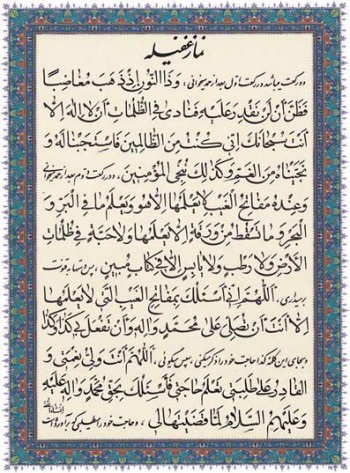 نماز غفیله
دو رکعت بجا آورده در رکعت اول بعد از حمد بخوانی، وَذَا النُّونِ إِذْ ذَهَبَ مُغَاضِبًا
فَظَنَّ أَنْ لَنْ نَقْدِرَ عَلَيْهِ فَنَادَى فِي الظُّلُمَاتِ أَنْ لَا إِلَهَ إِلَّا
أَنْتَ سُبْحَانَكَ إِنِّي كُنْتُ مِنَ الظَّالِمِينَ فَاسْتَجَبْنَا لَهُ وَ
نَجَّيْنَاهُ مِنَ الْغَمِّ وَكَذَلِكَ نُنْجِي الْمُؤْمِنِينَ، در رکعت دوم بعد از حمد بخوانی
وَعِنْدَهُ مَفَاتِحُ الْغَيْبِ لَا يَعْلَمُهَا إِلَّا هُوَ وَيَعْلَمُ مَا فِي الْبَرِّ وَ
الْبَحْرِ وَمَا تَسْقُطُ مِنْ وَرَقَةٍ إِلَّا يَعْلَمُهَا وَلَا حَبَّةٍ فِي ظُلُمَاتِ
الْأَرْضِ وَلَا رَطْبٍ وَلَا يَابِسٍ إِلَّا فِي كِتَابٍ مُبِينٍ، پس دستها به قنوت
برمیداری، اَللَّهُمَّ إِنِّي أَسْئَلُكَ بِمَفَاتِحِ الْغَيْبِ الَّتِي لَا يَعْلَمُهَا
إِلَّا أَنْتَ أَنْ تُصَلِّيَ عَلَى مُحَمَّدٍ وَآلِهِ وَأَنْ تَفْعَلَ بِي كَذَا وَكَذَا
و بجای این کلمه کذا حاجت خود را ذکر میکنی، سپس میگوئی، اَللَّهُمَّ أَنْتَ وَلِيُّ نِعْمَتِي وَ
الْقَادِرُ عَلَى طَلِبَتِي تَعْلَمُ حَاجَتِي فَأَسْئَلُكَ بِحَقِّ مُحَمَّدٍ وَآلِهِ عَلَيْهِ
وَعَلَيْهِمُ السَّلَامُ لَمَّا قَضَيْتَهَا لِي، و حاجت خود را میطلبی که برآورده است